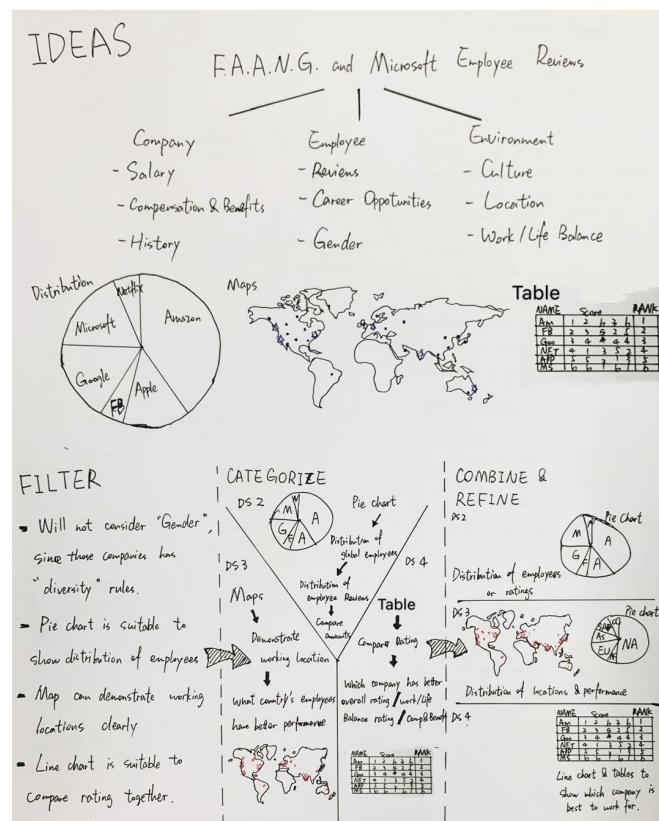 IDEAS
F.A.A.N.G. and Microsoft Employee Reviews
Company
- Salary
- Compensation & Benefits
- History
Employee
- Reviews
- Career Oppotunities
- Gender
Environment
- Culture
- Location
- Work/Life Balance
Distribution
Netflix
Amazon
Microsoft
Google
FB
Apple
Maps
Table
NAME Score RANK
Am 1 2 6 3 6 1
FB 2 3 5 2 5 2
Goo 3 4 4 4 4 3
NET 4 1 3 5 2 4
APP
MS
FILTER
- Will not consider "Gender",
since those companies has
"diversity" rules.
- Pie chart is suitable to
show distribution of employees
- Map can demonstrate working
locations clearly
- Line chart is suitable to
compare rating together.
CATEGORIZE
DS 2
M
N
A
G
F
A
Pie chart
Distribution of
global employees
Distribution of
employee Reviews
Compare
amounts
DS 3
Maps
Demonstrate
working location
What country's employees
have better performance
DS 4
Table
Compare Rating
Which company has better
overall rating / work/Life
Balance rating / Comp& Benefit
NAME Score RANK
Am
FB
Goo
NET
APP
MS
COMBINE &
REFINE
DS2
Pie Chart
M
A
G
F
A
Distribution of employees
or ratings
DS3
Pie chart
As
EU
NA
AF
Distribution of locations & performance
DS 4
NAME Score RANK
Am
FB
Goo
NET
APP
MS
Line chart & tables to
show which company is
best to work for.